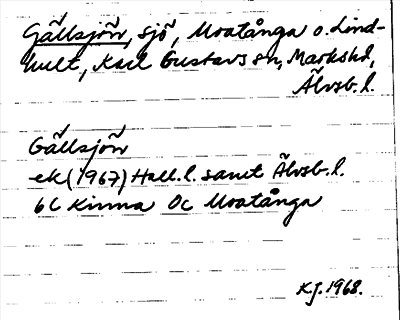 Gällsjön, sjö, Uvatånga o. Lind-
hult, Karl Gustavs sn, Markshd,
Älvsb. l.
Gällsjön
ek (1967) Hall. l. samt Älvsb. l.
6C Kinna 0c Uvatånga
KJ. 1968.